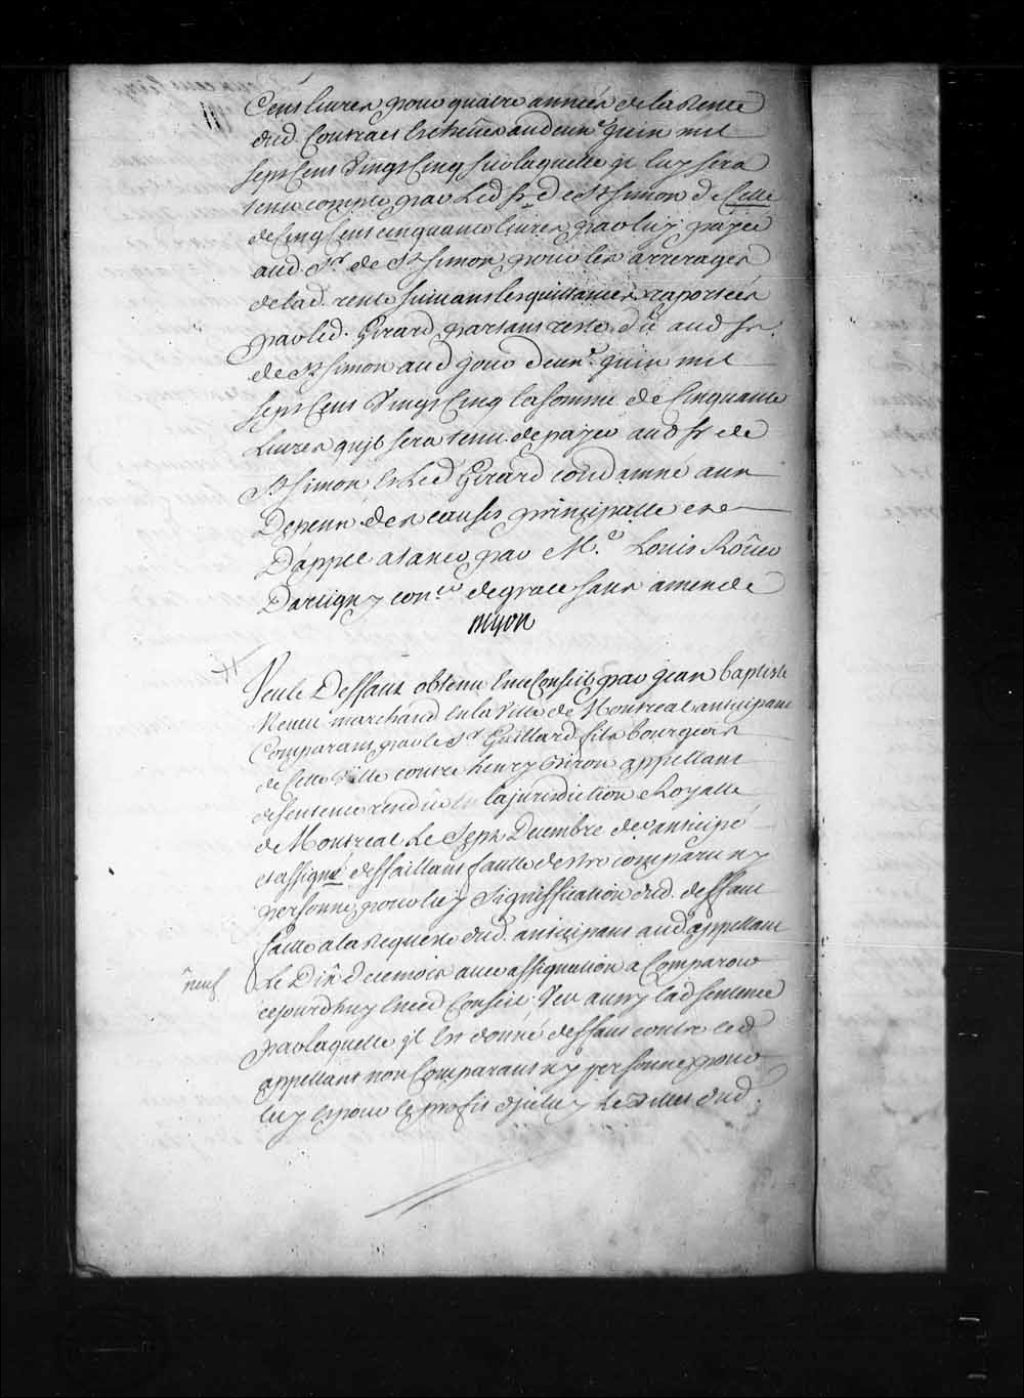 Cens livres pour quatre années de la Rente
dud. Contract Escheües aud un.e Juin mil
sept Cens Vingt Cinq sur laquelle jl luy sera
tenu compte par Led Sr. de St Simon de Celle
de Cinq Cens cinquante livres par luy payée
aud. Sr de St Simon pour les arrerages
de lad. rente suivant les quittances raportées
par led. Girard, partant reste dû aud Sr.
de St Simon aud jour d'un.e Juin mil
sept Cens Vingt Cinq la somme de Cinquante
Livres qu'jl sera tenu de payer aud Sr de
St Simon Et Led Girard condamné aux
Depens des causes principalle et
D'appel a taxer par Me. Louis Roüer
Dartigny con.er de grace sans amende
Veu le Deffaut obtenu En ce Conseil par jean baptiste
Neveu marchand En la Ville de Montreal anticipant
Comparant par le Sr Gaillard fils bourgeois
de Cette Ville contre henry appellant
de sentence rendüe En la jurisdiction Royalle
de Montreal Le Sept Decembre der anticipé
et assigné deffaillant faulte d'estre comparu ny
personne pour luy Signiffication dud. deffaut
faitte a la Requeste dud. anticipant aud appellant
neuf
Le de ce mois avec assignation a Comparoir
cejourd'huy En ced Conseil. Veu aussy lad sentence
par laquelle jl Est donné deffaut contre led
appellant non Comparant ny personne pour
luy Et pour le profit dud.